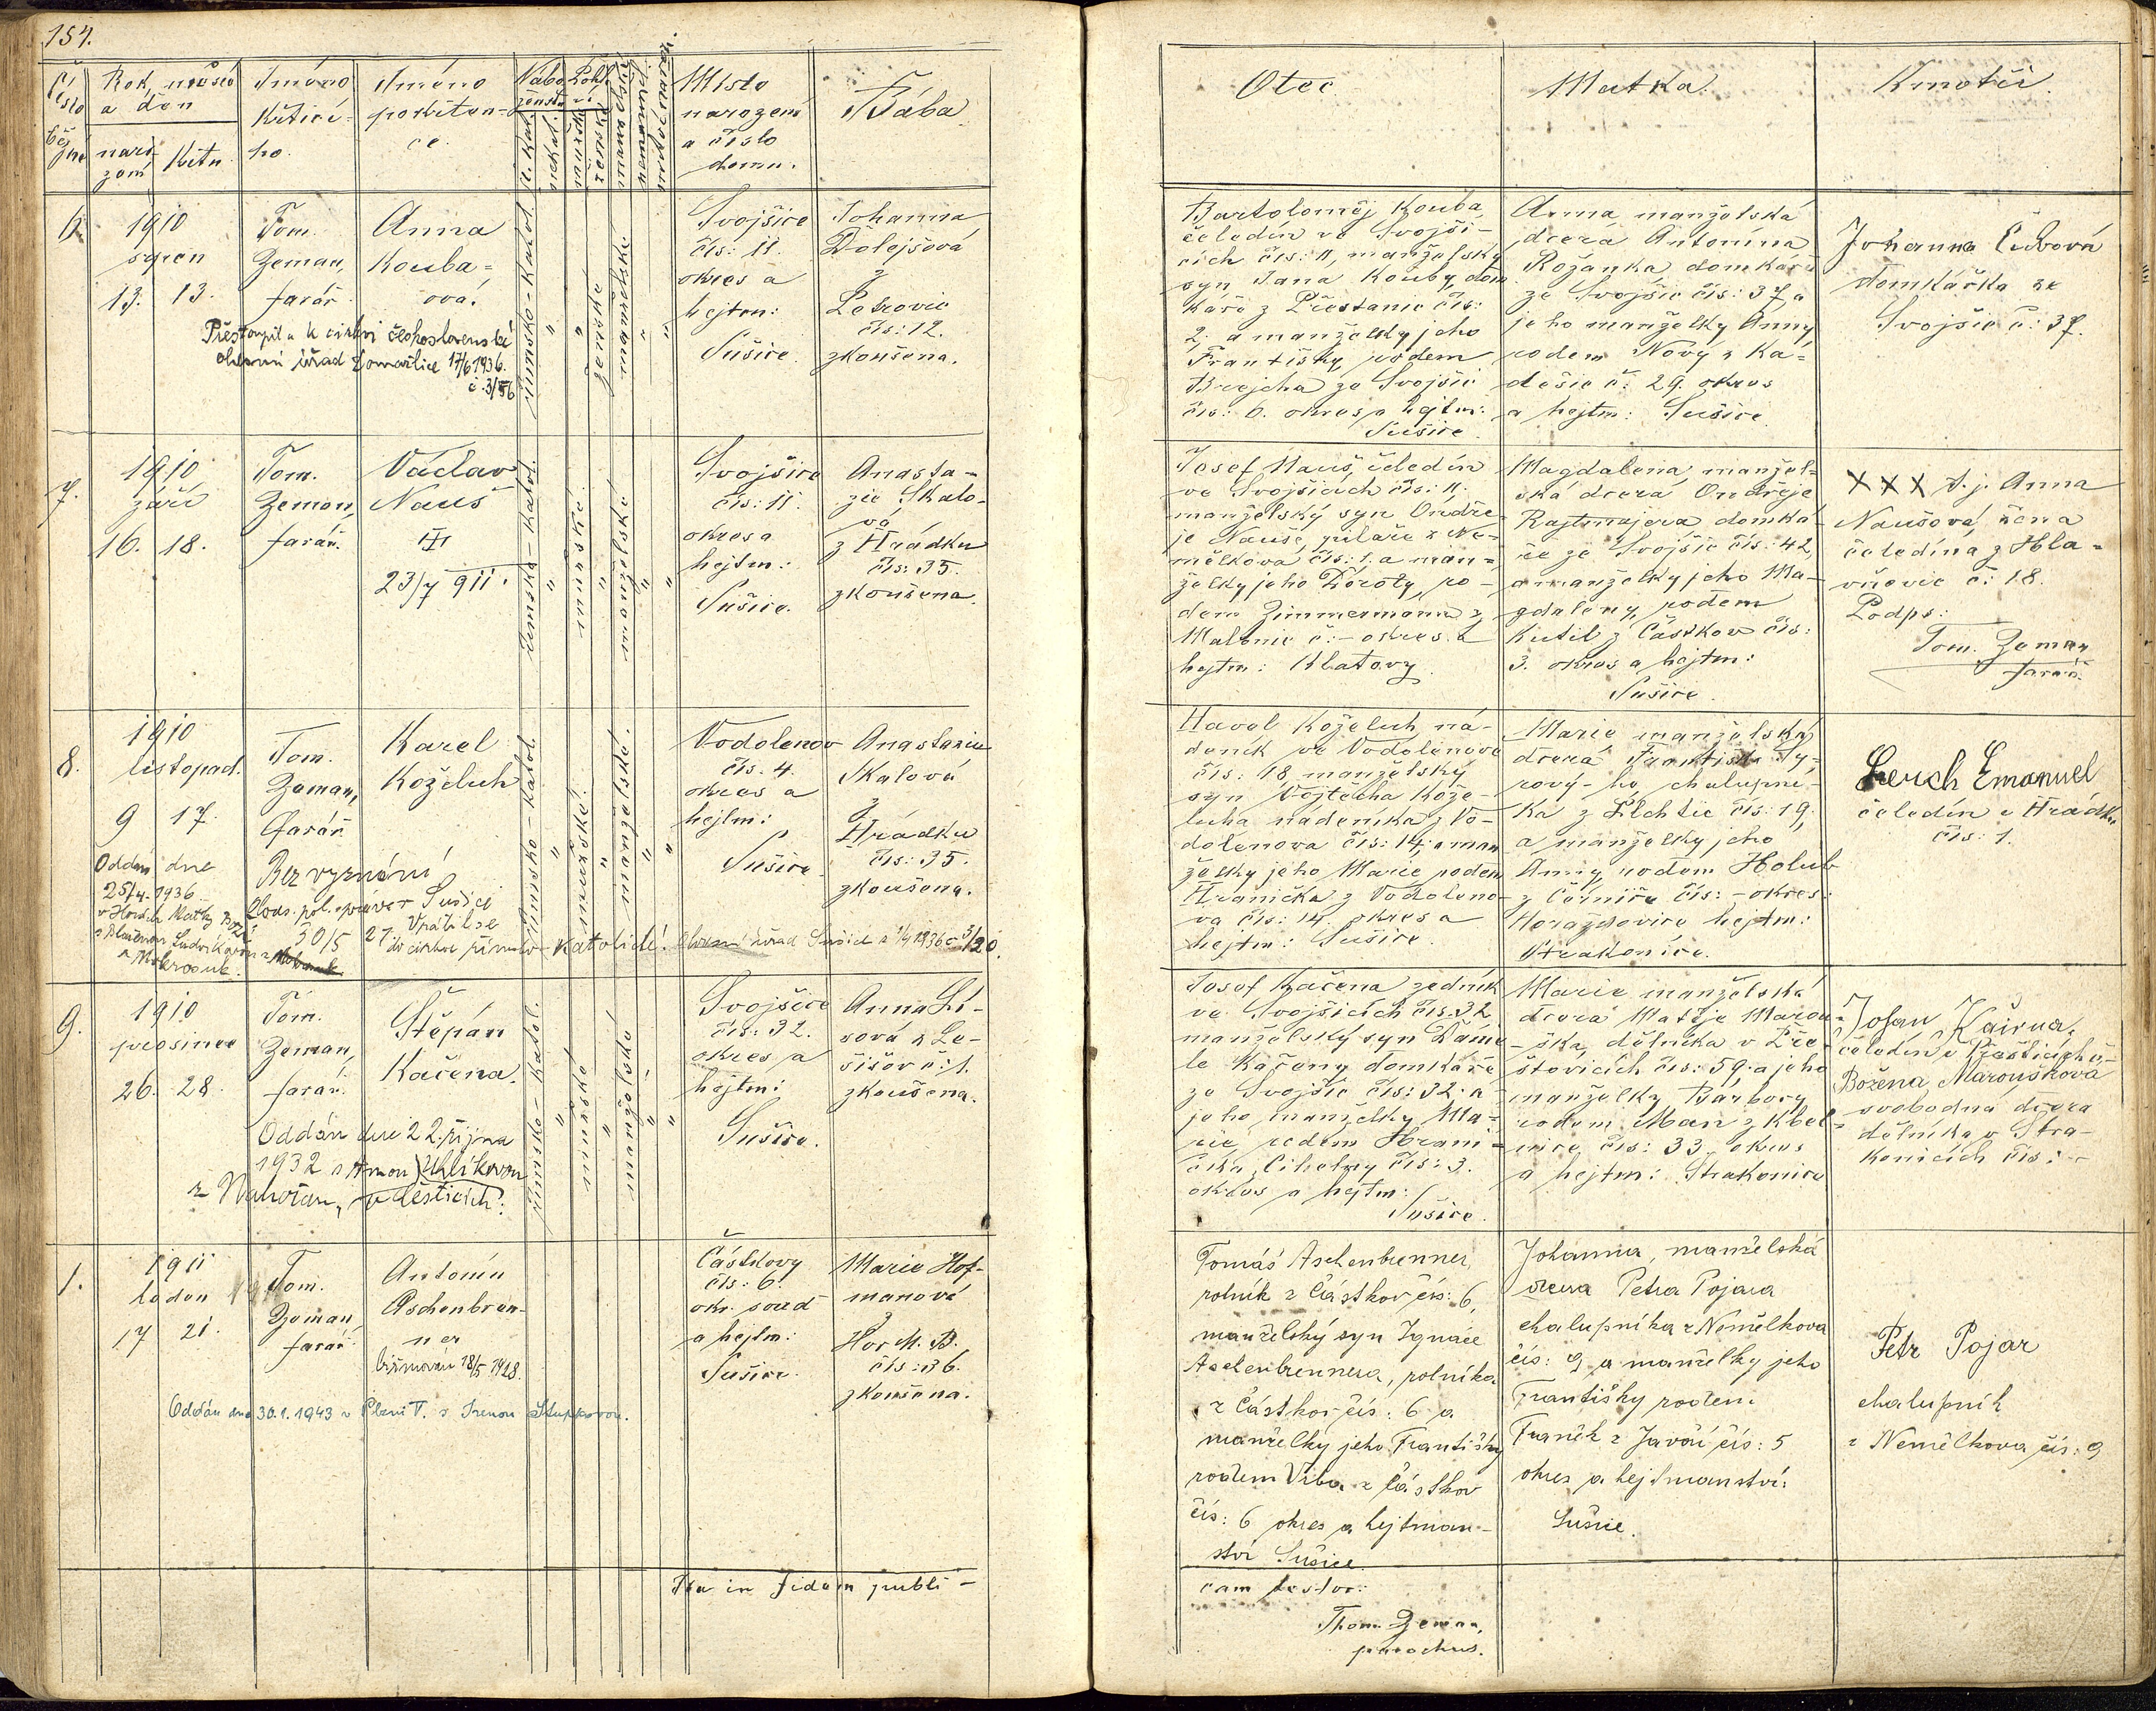 154.
Číslo běžné
Rok, měsíc
a den
naro-
zení
křtu
Jméno
křtící-
ho.
Jméno
pokřtěn-
ce.
Nábo-
ženství
Pohl.
ř. kat.
nekat.
mužské
ženské
manželské
nemanžel.
Místo
narození
a číslo
domu.
Bába
Otec
Matka
Kmotři.
6.
1910
srpen
13. 13.
Tom.
Zeman,
farář.
Anna
Kouba-
ová.
Přestoupila k církvi československé
17/6 1936.
římsko-katol.
ženské
manželské
Svojšice
čís: 11.
okres a
hejtm:
Sušice.
Johanna
Dolejšová
z
Petrovic
čís: 12.
zkoušena.
Bartoloměj Kouba,
čeledín ve Svojši-
cích čís: 11, manželský
syn Jana Kouby, dom
káře z Přestanic čís:
2, a manželky jeho
Františky, rodem
Brejcha ze Svojšic
čís: 6. okres a hejtm:
Sušice.
Anna, manželská
dcera Antonína
Rožanka, domkáře
ze Svojšic čís: 37, a
jeho manželky Anny
rodem Nový z Ka-
dešic č: 29. okres
a hejtm: Sušice.
Johanna Čubová
domkářka ze
Svojšic č: 37.
7.
1910
září
16. 18.
Tom.
Zeman,
farář.
Václav
Nauš
23/7 911.
římsko-katol.
mužské
manželské
Svojšice
čís: 11.
okres a
hejtm:
Sušice.
Anasta-
zie Skalo-
vá
z Hrádku
čís: 35.
zkoušena.
Josef Nauš, čeledín
ve Svojšicích čís: 11.
manželský syn Ondře-
je Nauše, pilaře z Ne-
mělkova čís: 1. a man-
želky jeho Doroty, ro-
dem Zimmermann z
Malonic č: - okres a
hejtm: Klatovy.
Magdalena, manžel-
ská dcera Ondřeje
Rajtmajera domká-
ře ze Svojšic čís: 42
a manželky jeho Ma-
gdaleny, rodem
Kutil z Částkov čís:
3. okres a hejtm:
Sušice.
XXX t. j. Anna
Naušová, žena
čeledína z Hla-
vňovic č: 18.
Podps:
Tom. Zeman
farář.
8.
1910
listopad.
9 17.
Tom.
Zeman,
farář.
Karel
Koželuh
Oddán dne
25/4 1936
Bez vyznání
30/5 27
Vrátil se
do církve římsko-katolické.
římsko-katol.
mužské.
manželské.
Vodolenov
čís: 4.
okres a
hejtm:
Sušice.
Anastazie
Skalová
z
Hrádku
čís: 35.
zkoušena.
Havel Koželuh, ná-
deník ve Vodolenově
čís: 18. manželský
syn Vojtěcha Kože-
luha nádeníka z Vo-
dolenova čís: 14; a man
želky jeho Marie, rodem
Hranička z Vodoleno-
va čís: 14. okres a
hejtm: Sušice.
Marie manželská
dcera Františka Sy-
rový-ho, chalupní-
ka z Lhchtic čís: 19,
a manželky jeho
Anny, rodem Holub
z Černíče čís: - okres:
Horažďovice hejtm:
Strakonice.
Lerch Emanuel
čeledín z Hrádku
čís: 1.
9.
1910
prosinec
26. 28.
Tom.
Zeman,
farář.
Štěpán
Kačena.
Oddán dne 22. října
1932 s Annou Uhlíkovou
římsko-katol.
mužské
manželské
Svojšice
čís: 32.
okres a
hejtm:
Sušice.
Anna Li-
sová z Le-
šišov č: 1.
zkoušena.
Josef Kačena zedník
ve Svojšicích čís: 32
manželský syn Dani-
le Kačeny domkáře
ze Svojšic čís: 32. a
jeho manželky Ma-
rie, rodem Hrani-
čka, Cihelny čís: 3.
okres a hejtm:
Sušice.
Marie manželská
dcera Matěje Marou-
ška, dělníka v Pře-
šťovicích čís: 59. a jeho
manželky Barbory
rodem Man z Kbel-
nice čís: 33. okres
a hejtm: Strakonice
Božena Maroušková
svobodná dcera
dělníka v Stra-
konicích čís: -
1.
1911
leden
17 21.
Tom.
Zeman,
farář.
Antonín
Aschenbren-
ner
biřmován 18/5 1928.
Oddán dne 30.1.1943 v Plzni V. s Irenou Stupkovou.
Částkovy
čís: 6.
okr. soud
a hejtm:
Sušice.
Marie Hof-
manová
z
Hor M. B.
čís: 36.
zkoušena.
Tomáš Aschenbrenner,
rolník z Částkov čís: 6,
manželský syn Ignáce
Aschenbrennera, rolníka
z Částkov čís: 6 a
manželky jeho Františky
rodem Vrba z Částkov
čís: 6 okres a hejtman-
ství Sušice
Johanna, manželská
dcera Petra Pojara
chalupníka z Nemělkova
čís: 9 a manželky jeho
Františky rodem
Franěk z Javoří čís: 5
okres a hejtmanství:
Sušice.
Petr Pojar
chalupník
z Nemělkova čís: 9
Ita in fidem publi-
cam testor:
Thom. Zeman,
parochus.